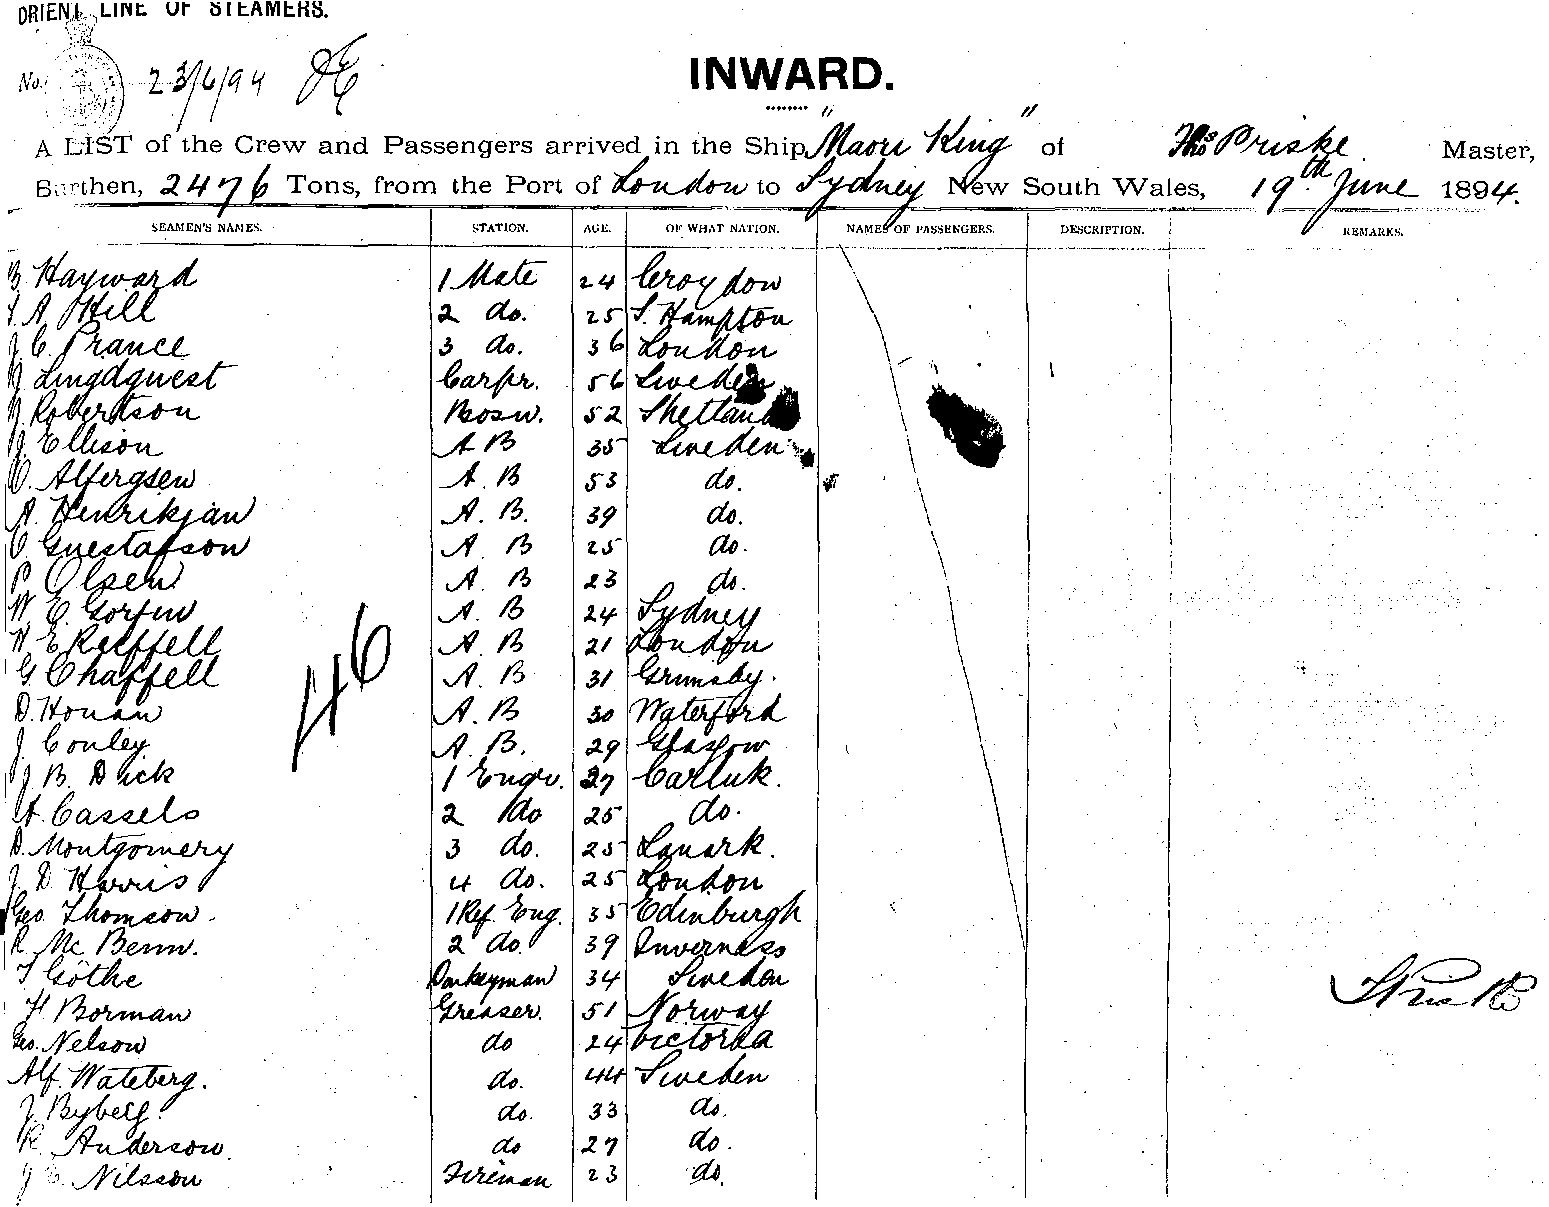 ORIENT LINE OF STEAMERS.
No. 23/6/94
INWARD.
A LIST of the Crew and Passengers arrived in the Ship "Maori King" of Thos Priske Master,
Burthen, 2476 Tons, from the Port of London to Sydney New South Wales, 19th June 1894.
SEAMEN'S NAMES. STATION. AGE. OF WHAT NATION. NAMES OF PASSENGERS. DESCRIPTION. REMARKS.
B Hayward 1 Mate 24 Croydon
A Hill 2 do. 25 S. Hampton
J C Prance 3 do. 36 London
Lingdquest Carpr. 56 Sweden
J Robertson Bosn. 52 Shetland
J Ellison A B 35 Sweden
C. Alfergsen A. B 53 do.
A. Henrikjan A. B. 39 do.
C Guestafson A B 25 do.
P Olsen A B 23 do.
W E Gorfin A. B 24 Sydney
E Reiffell A. B 21 London
G Chaffell A. B 31 Grimsby.
D. Honan A. B 30 Waterford
J Conley A. B. 29 Glasgow
J B. Dick 1 Engr. 27 Carluk.
A. Cassels 2 do 25 do.
D. Montgomery 3 do. 25 Lanark.
J D Harris 4 do. 25 London
Geo. Thomson. 1 Ref. Eng. 35 Edinburgh
R Mc Benn. 2 do. 39 Inverness
Göthe Donkeyman 34 Sweden
H Borman Greaser. 51 Norway
Geo. Nelson do 24 Victoria
Alf. Wateberg. do. 44 Sweden
J. Byberg. do. 33 do.
R. Anderson. do 27 do.
Nilsson Fireman 23 do.
46